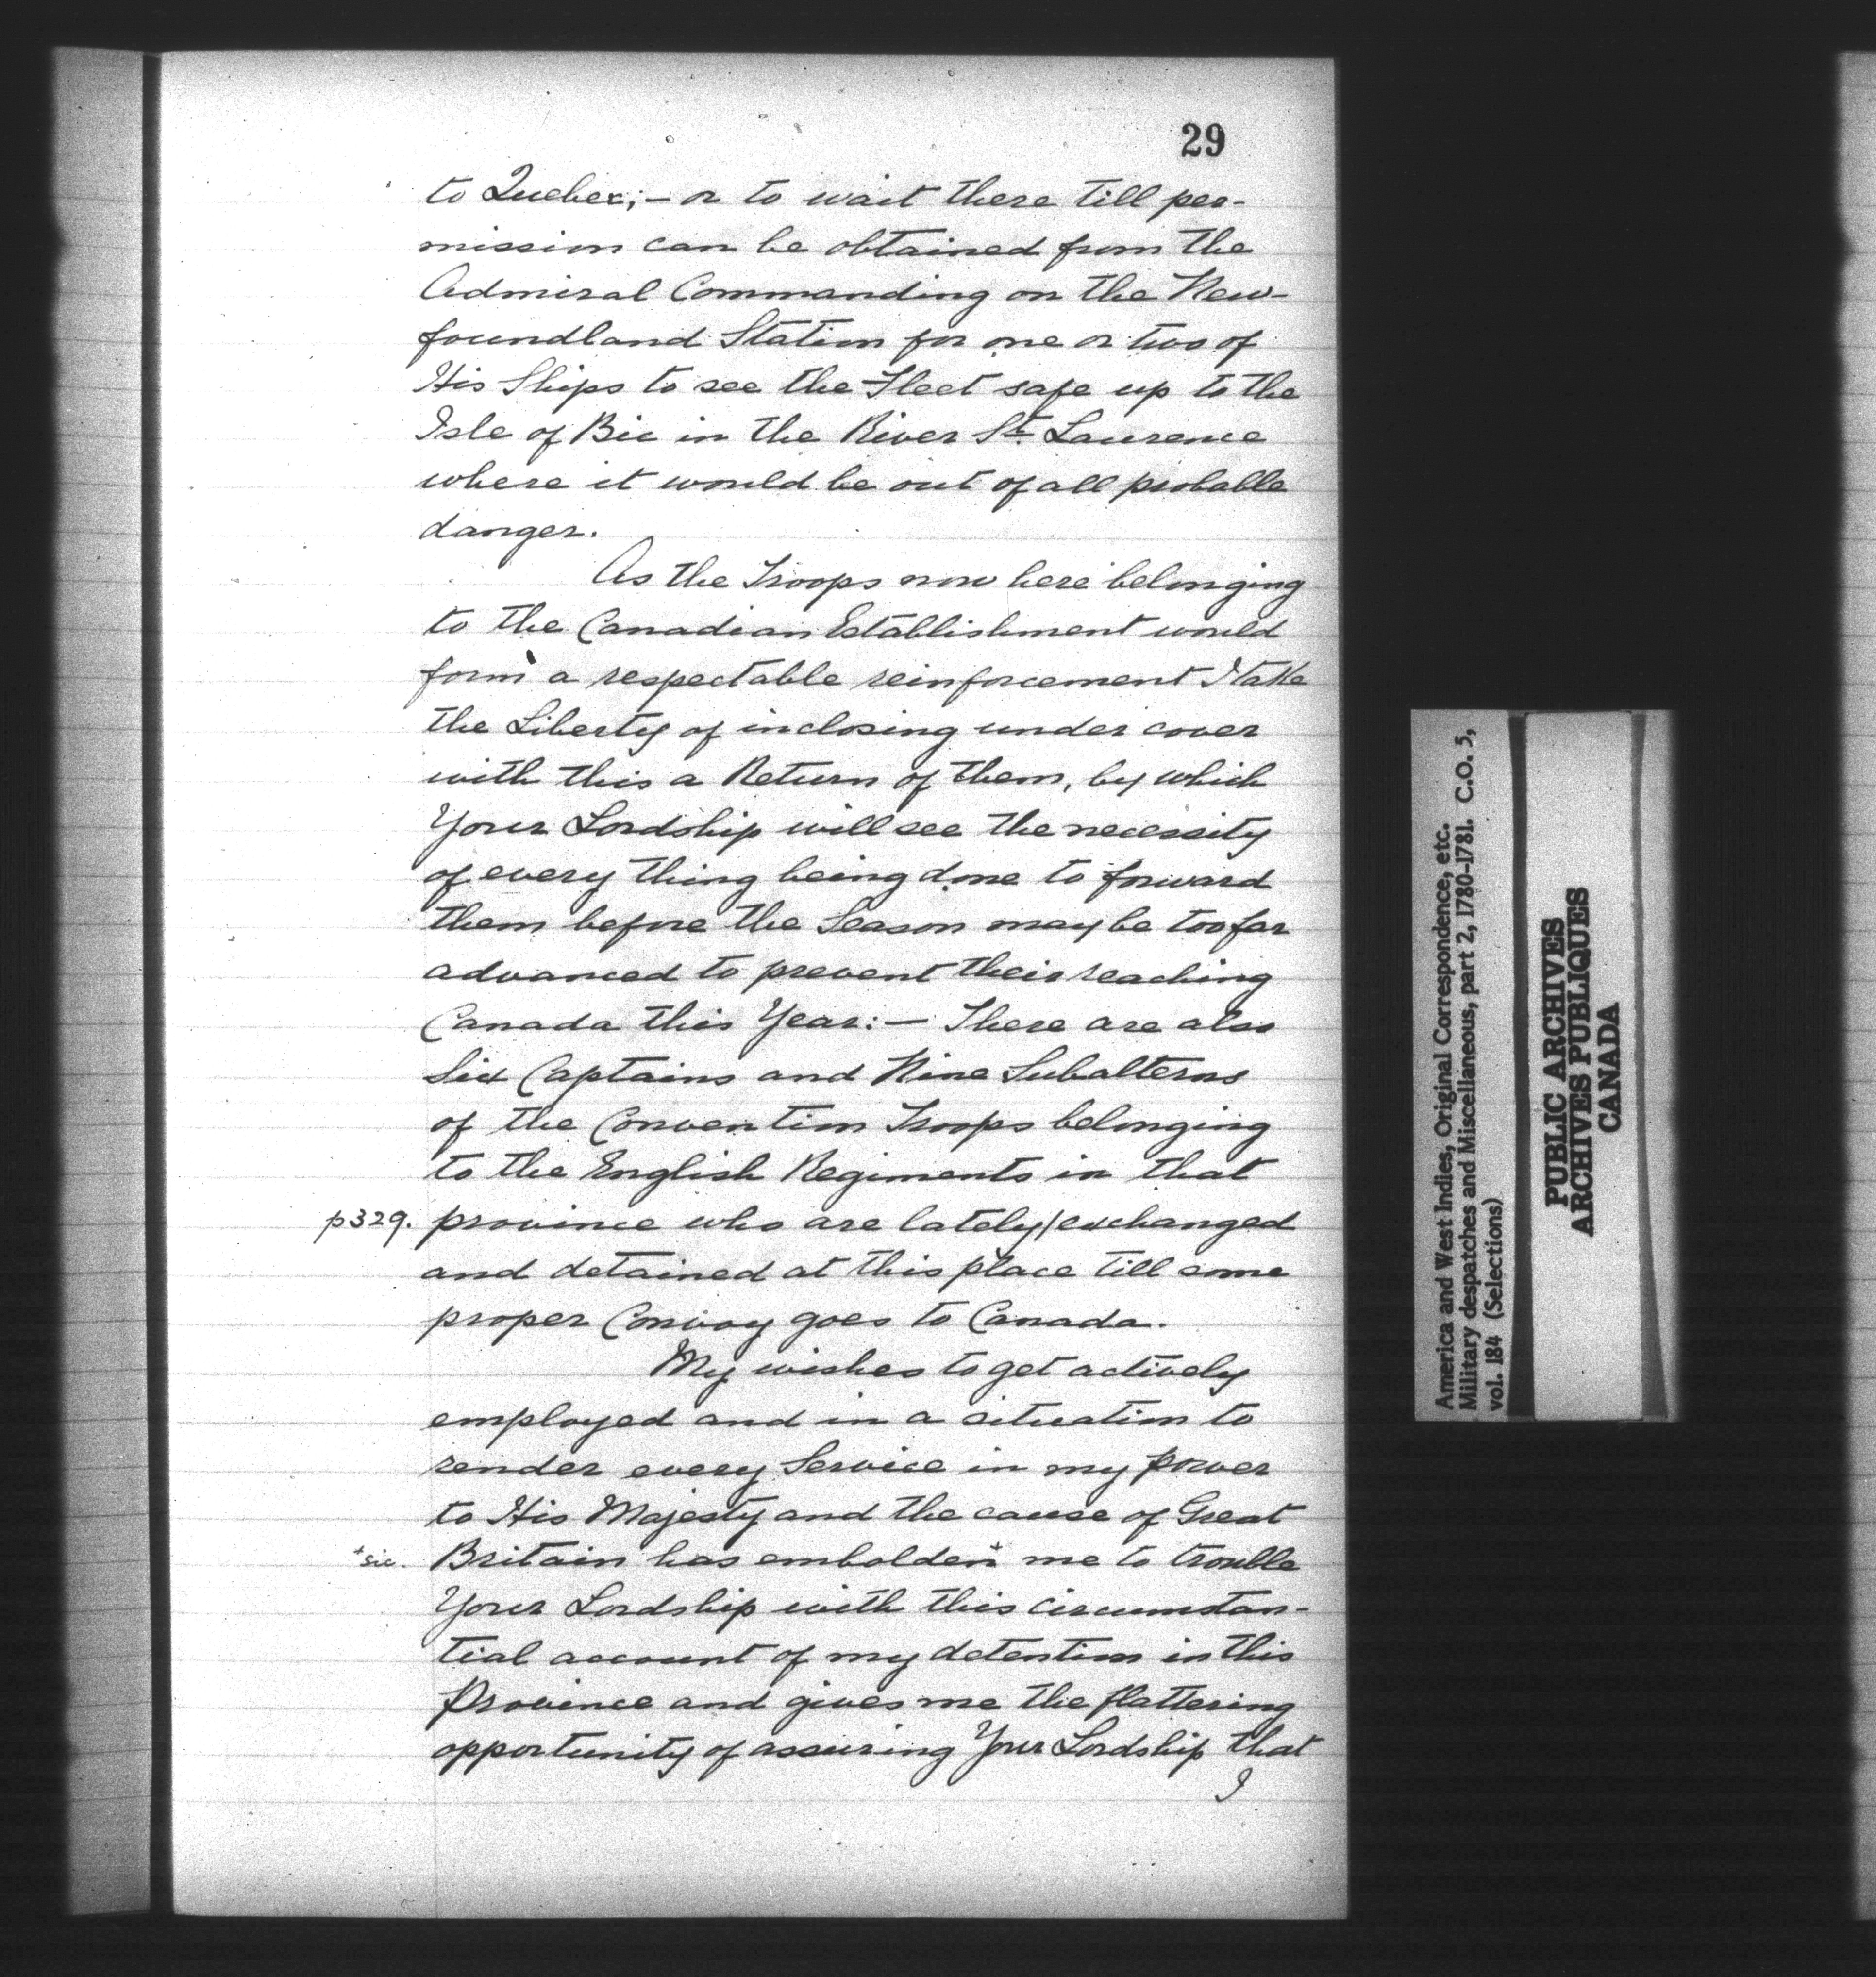 29
to Quebec;— or to wait there till per-
mission can be obtained from the
Admiral Commanding on the New-
foundland Station for one or two of
His Ships to see the Fleet safe up to the
Isle of Bic in the River St. Laurence
where it would be out of all probable
danger.
As the Troops now here belonging
to the Canadian Establishment would
form a respectable reinforcement I take
the Liberty of inclosing under cover
with this a Return of them, by which
Your Lordship will see the necessity
of every thing being done to forward
them before the Season may be too far
advanced to prevent their reaching
Canada this Year:— There are also
Six Captains and Nine Subalterns
of the Convention Troops belonging
to the English Regiments in that
p329. province who are lately/exchanged
and detained at this place till some
proper Convoy goes to Canada.
My wishes to get actively
employed and in a situation to
render every Service in my power
to His Majesty and the cause of Great
+sic. Britain has embolden+ me to trouble
Your Lordship with this circumstan-
tial account of my detention in this
Province and gives me the flattering
opportunity of assuring Your Lordship that
I
America and West Indies, Original Correspondence, etc.
Military despatches and Miscellaneous, part 2, 1780-1781. C.O. 5,
vol. 184 (Selections)
PUBLIC ARCHIVES
ARCHIVES PUBLIQUES
CANADA